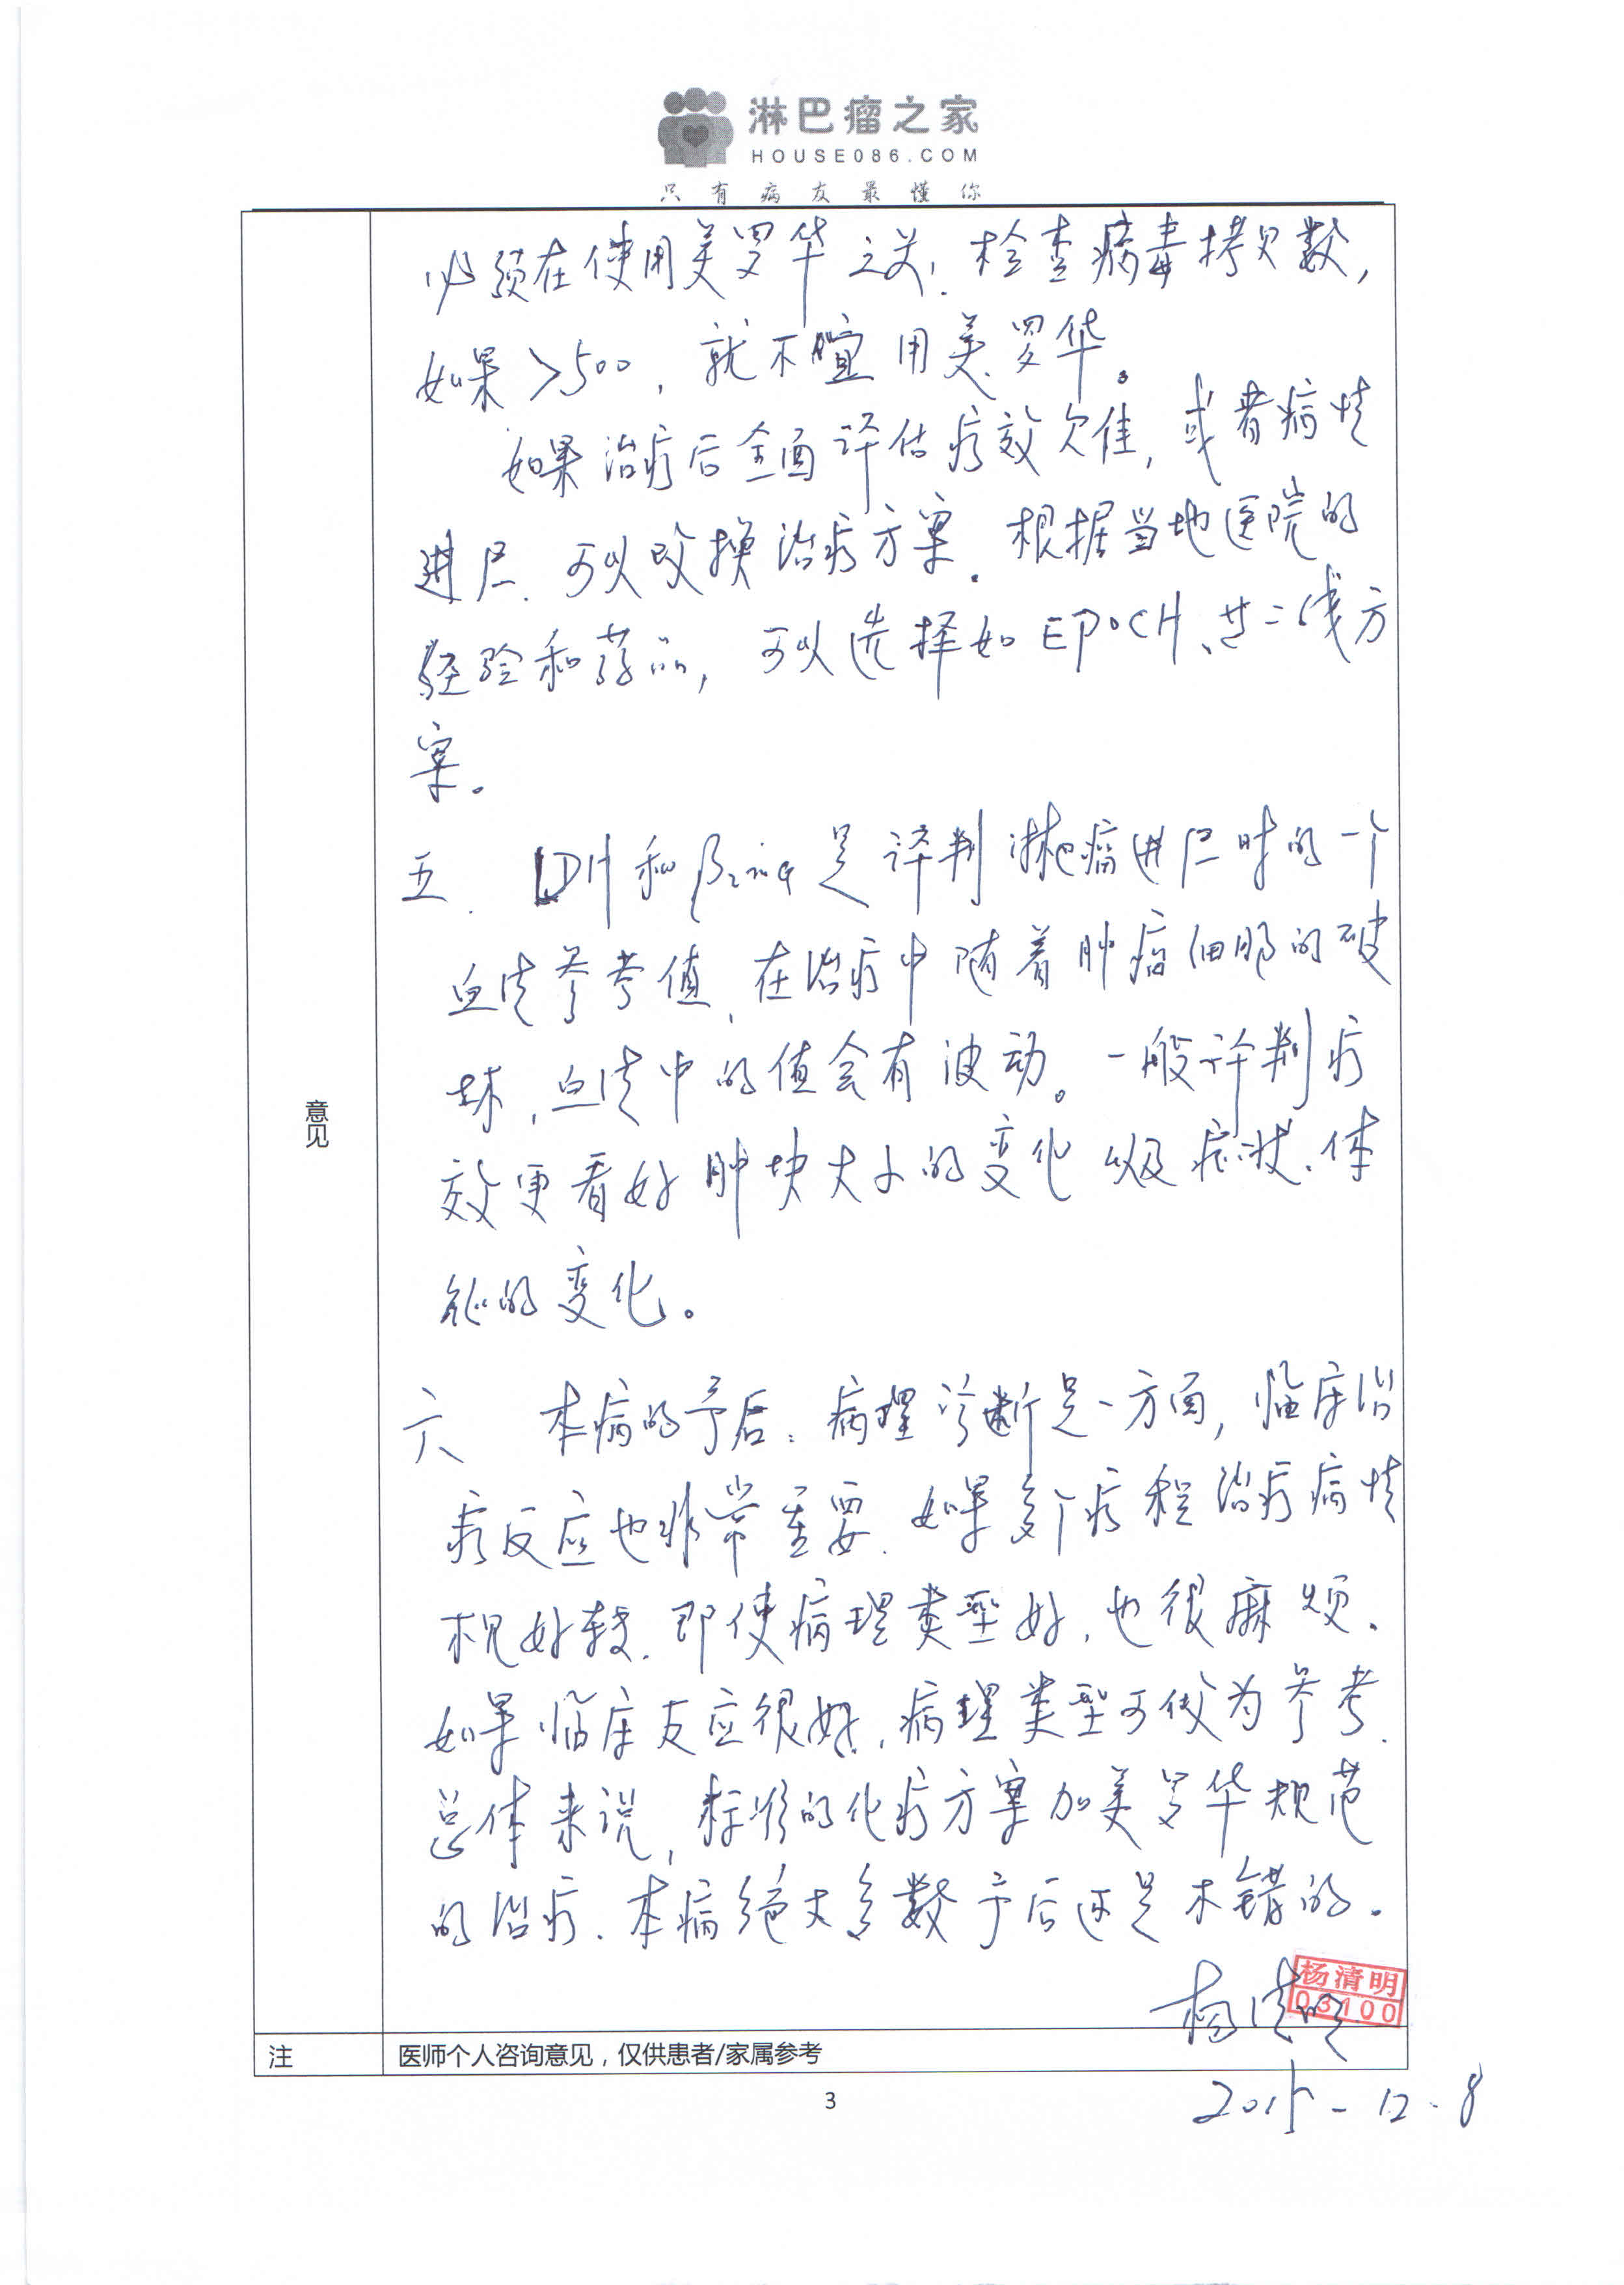 淋巴瘤之家
HOUSE086.COM
只有病友最懂你
必须在使用美罗华之前，检查病毒拷贝数，
如果>500，就不宜用美罗华。
如果治疗后全面评估疗效欠佳，或者病情
进展，可以改换治疗方案。根据当地医院的
经验和药品，可以选择如EPOCH、等二线方
案。
五. LDH和β2-mG是评判淋巴瘤进展时的一个
血清参考值，在治疗中随着肿瘤细胞的破
坏，血清中的值会有波动。一般评判疗
效更看好肿块大小的变化以及症状、体
能的变化。
六 本病的予后：病理诊断是一方面，临床治
疗反应也非常重要。如果多个疗程治疗病情
未见好转，即使病理类型好，也很麻烦。
如果临床反应很好，病理类型可仅为参考。
总体来说，标准的化疗方案加美罗华规范
的治疗，本病绝大多数予后还是不错的。
杨清明
杨清明
03100
意见
注 医师个人咨询意见，仅供患者/家属参考
3
2015-12-8